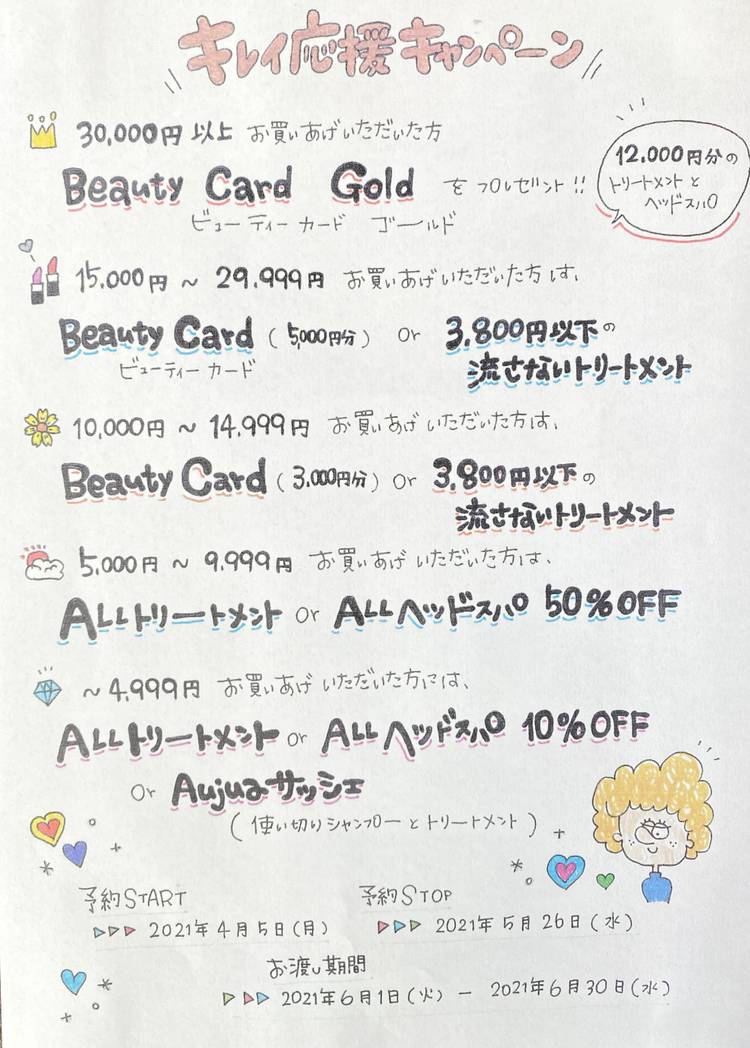 キレイ応援キャンペーン
30,000円以上 お買いあげいただいた方
Beauty Card Gold をプレゼント!!
ビューティーカード ゴールド
12.000円分の
トリートメントと
ヘッドスパ
15.000円 ~ 29.999円 お買いあげいただいた方は、
Beauty Card (5,000円分) or 3.800円以下の
ビューティーカード
流さないトリートメント
10,000円 ~ 14.999円 お買いあげいただいた方は、
Beauty Card (3.000円分) or 3.800円以下の
流さないトリートメント
5,000円 ~ 9.999円 お買いあげいただいた方は、
ALLトリートメント or ALLヘッドスパ 50%OFF
~4,999円 お買いあげいただいた方には、
ALLトリートメント or ALLヘッドスパ 10%OFF
or Aujuaサッシェ
(使い切りシャンプーとトリートメント)
予約START
2021年4月5日(月)
予約STOP
2021年5月26日(水)
お渡し期間
2021年6月1日(火) — 2021年6月30日(水)